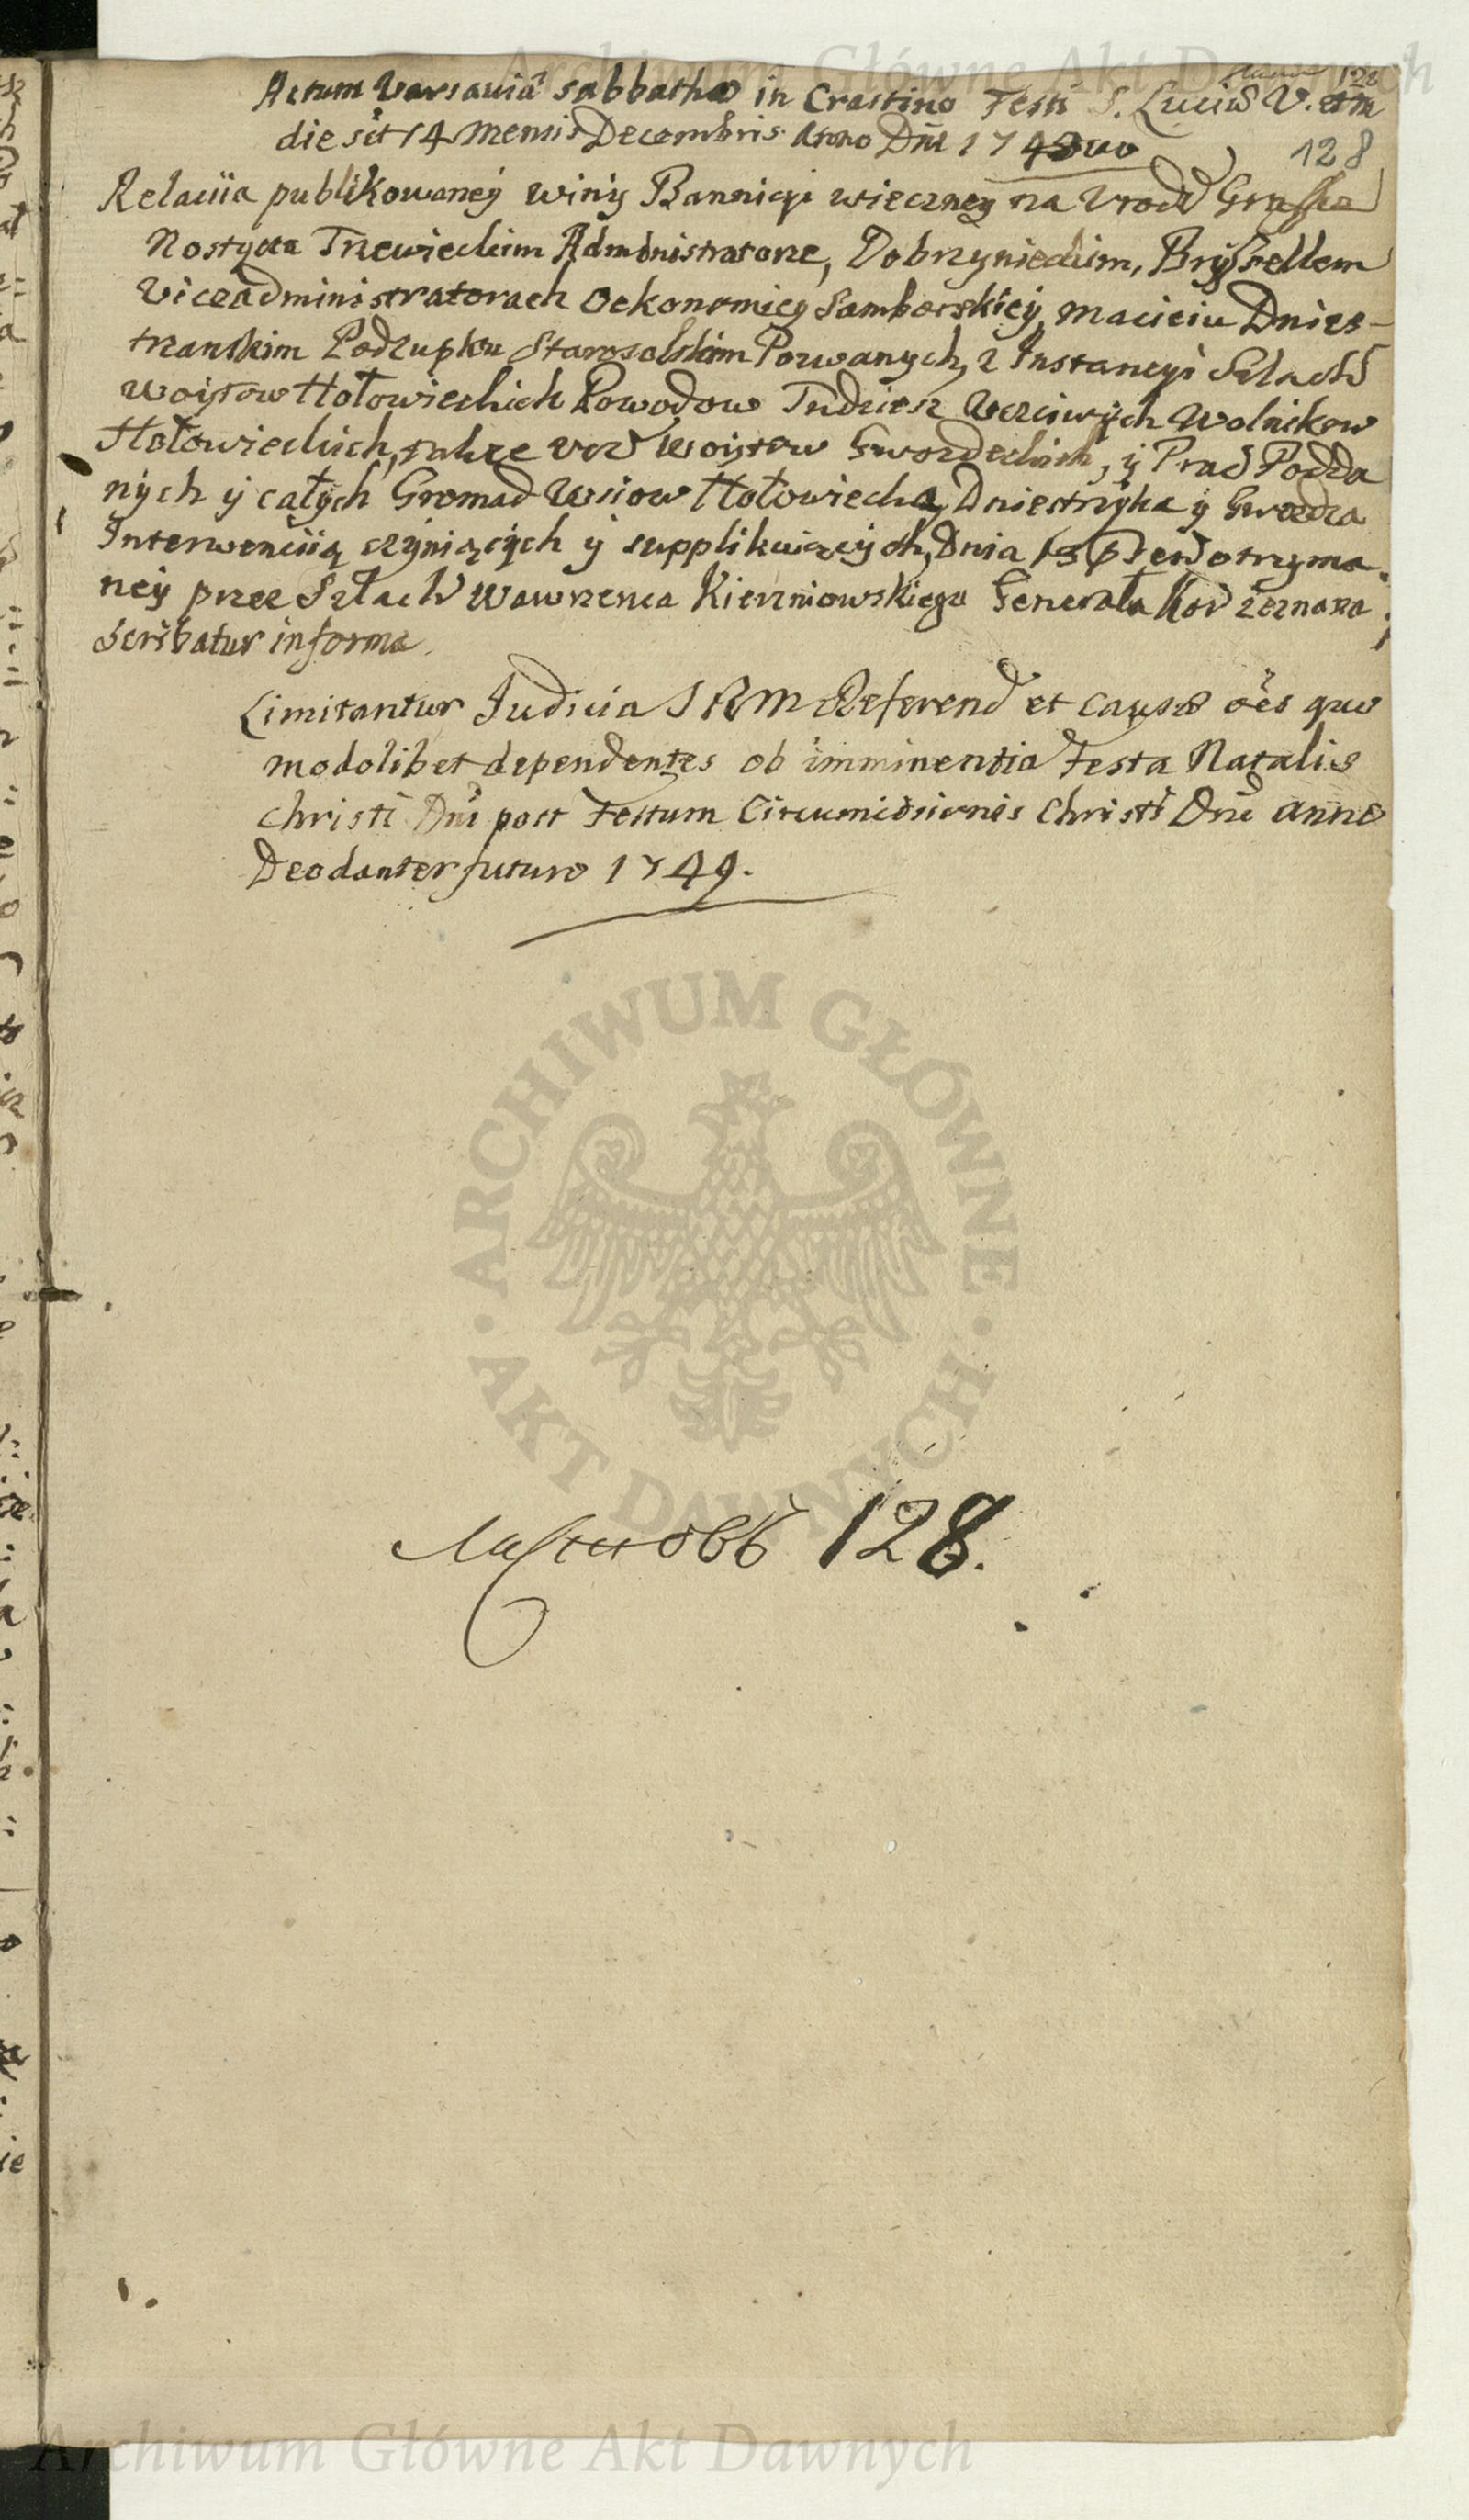 Archiwum Główne Akt Dawnych
128
Actum Varsaviæ sabbatho in Crastino Festi S. Luciæ V. et M
die sct 14 Mensis Decembris Anno Dni
128
Relaciia publikowaney winy Bannicyi wieczney na Vrodd Graffa
Nostyca Trzewieckim Administratorze, Dobrzynieckim, Bryszellem
Viceadministratorach Oekonomicy Samborskiey, Macieiu Dnies-
trzanskim Podzupku Starosolskim Pozwanych, z Instancyi Szlachd
Woytow Hołowieckich Powodow Tudziesz Vczciwych Wolnikow
Hołowieckich, takze vcz Woytow Gwozdeckich, y Prad Podda
nych y całych Gromad Wsiow Hołowiecka, Dniestrzyka y Gwozdca
Interwenciią czyniących y supplikuiących, Dnia 13 otrzyma.
ney przez Szlach Wawrzenca Kierzniowskiego Generała Kor zeznana;
scribatur in forma.
Limitantur Judicia S R M Referend et causæ oes quo
modolibet dependentes ob imminentia Festa Natalis
Christi Dni post Festum Circumcisionis Christi Dni anno
Deodanter futuro 1749.
ARCHIWUM GŁÓWNE
AKT DAWNYCH
Листовъ 128.
Archiwum Główne Akt Dawnych